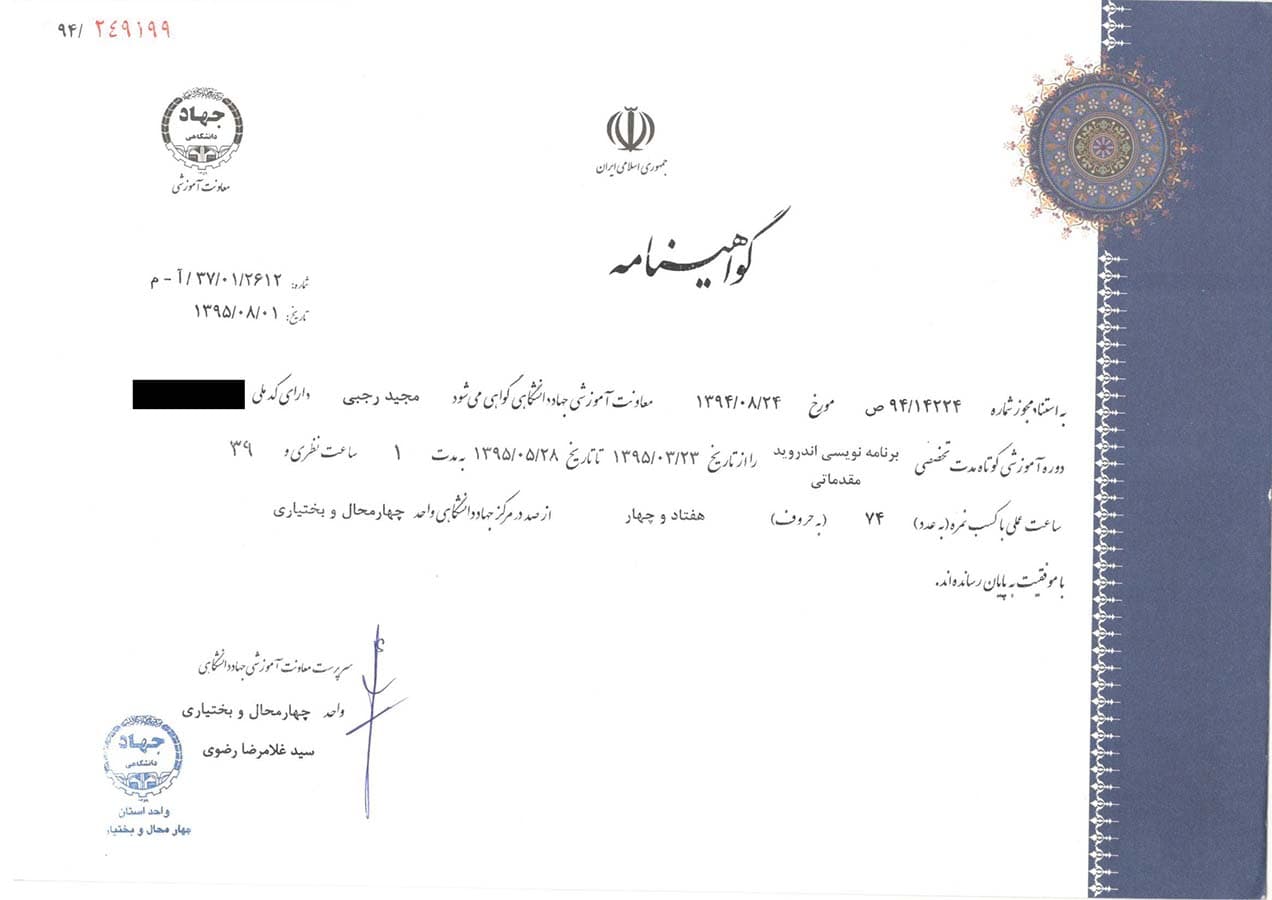 ۹۴/ ۲۴۹۱۹۹
جهاد
دانشگاهی
معاونت آموزشی
جمهوری اسلامی ایران
گواهینامه
شماره: ۳۷/۰۱/۲۶۱۲ / آ - م
تاریخ: ۱۳۹۵/۰۸/۰۱
به استناد مجوز شماره ۹۴/۱۴۲۲۴ ص مورخ ۱۳۹۴/۰۸/۲۴ معاونت آموزشی جهاد دانشگاهی گواهی می‌شود مجید رجبی دارای کد ملی
دوره آموزشی کوتاه مدت تخصصی برنامه نویسی اندروید مقدماتی را از تاریخ ۱۳۹۵/۰۳/۲۳ تا تاریخ ۱۳۹۵/۰۵/۲۸ به مدت ۱ ساعت نظری و ۳۹
ساعت عملی با کسب نمره (به عدد) ۷۴ (به حروف) هفتاد و چهار از صد در مرکز جهاد دانشگاهی واحد چهارمحال و بختیاری
با موفقیت به پایان رسانده‌اند.
سرپرست معاونت آموزشی جهاد دانشگاهی
واحد چهارمحال و بختیاری
سید غلامرضا رضوی
جهاد
دانشگاهی
واحد استان
چهار محال و بختیاری